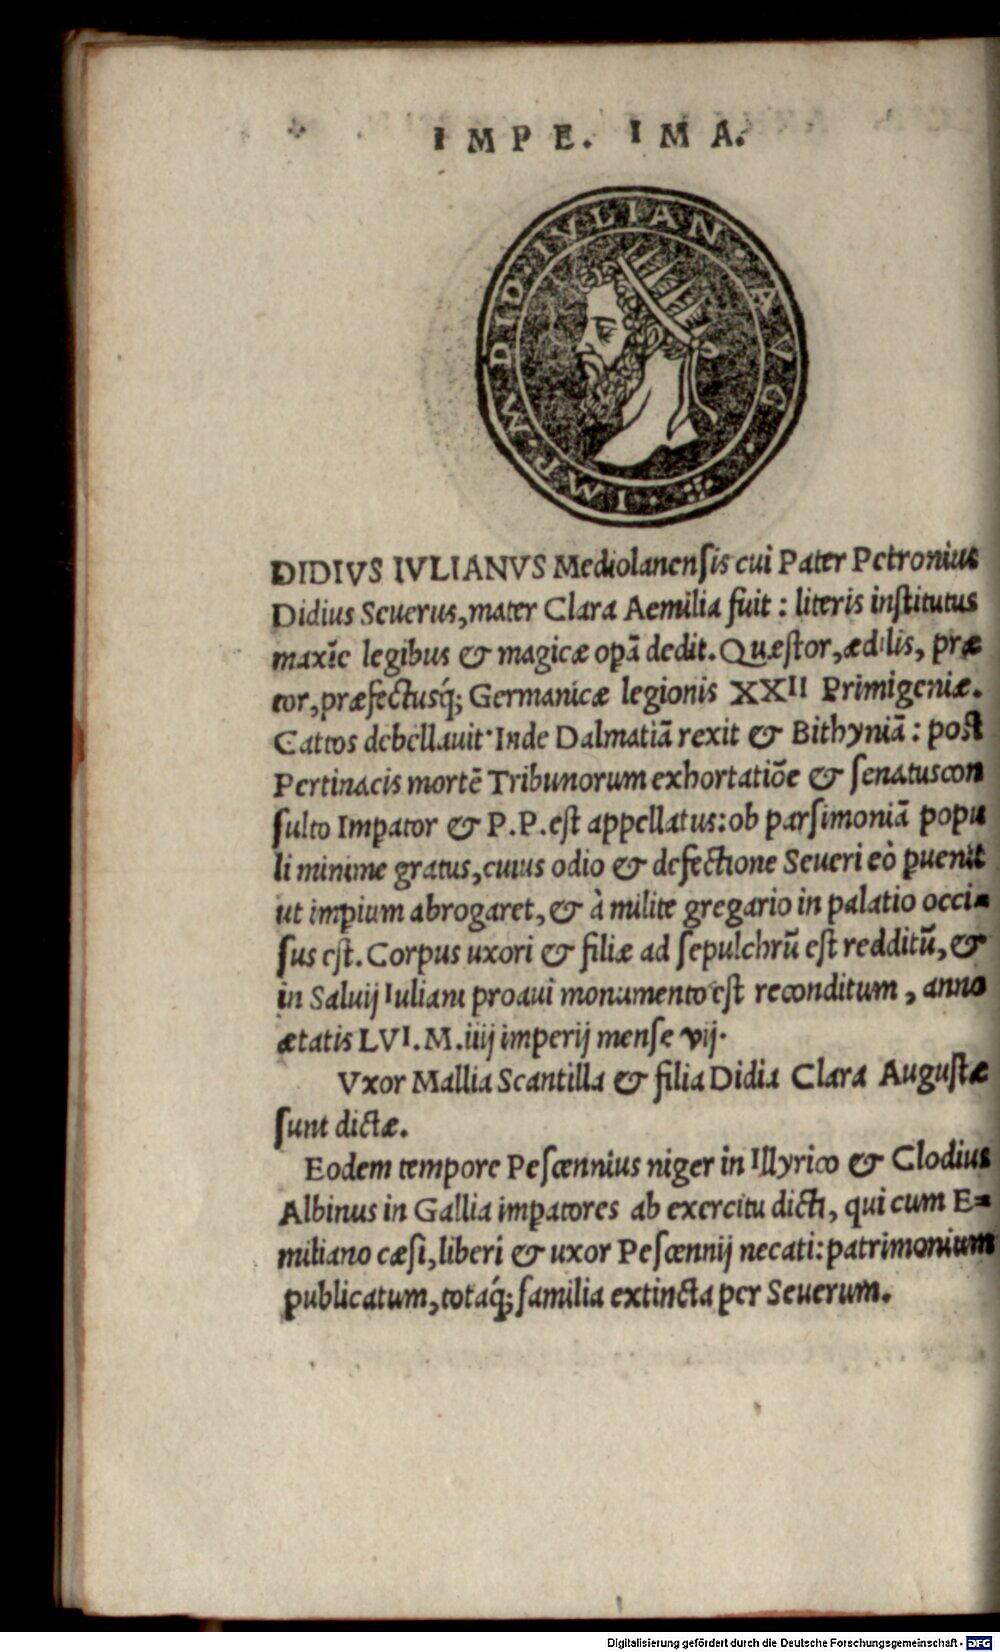 IMPE. IMA.
IMP. M. DID. IVLIAN. AVG.
DIDIVS IVLIANVS Mediolanensis cui Pater Petronius
Didius Seuerus, mater Clara Aemilia fuit: literis institutus
maxīe legibus & magicæ opā dedit. Quæstor, ædilis, præ
tor, præfectusq́; Germanicæ legionis XXII Primigeniæ.
Cattos debellauit· Inde Dalmatiā rexit & Bithyniā: post
Pertinacis mortē Tribunorum exhortatiōe & senatuscon
sulto Imꝑator & P.P. est appellatus: ob parsimoniā popu
li minime gratus, cuius odio & defectione Seueri eò ꝑuenit
ut imꝑium abrogaret, & à milite gregario in palatio occi-
sus est. Corpus uxori & filiæ ad sepulchrū est redditū, &
in Saluij Iuliani proaui monumento est reconditum, anno
ætatis LVI. M. iiij imperij mense vij.
Vxor Mallia Scantilla & filia Didia Clara Augustæ
sunt dictæ.
Eodem tempore Pescennius niger in Illyrico & Clodius
Albinus in Gallia imꝑatores ab exercitu dicti, qui cum E-
miliano cæsi, liberi & uxor Pescennij necati: patrimonium
publicatum, totaq́; familia extincta per Seuerum.
Digitalisierung gefördert durch die Deutsche Forschungsgemeinschaft - DFG